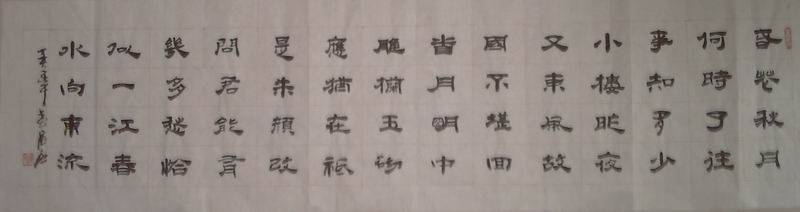 春花秋月
何時了往
事知多少
小樓昨夜
又東風故
國不堪回
首月明中
雕欄玉砌
應猶在祇
是朱顏改
問君能有
幾多愁恰
似一江春
水向東流